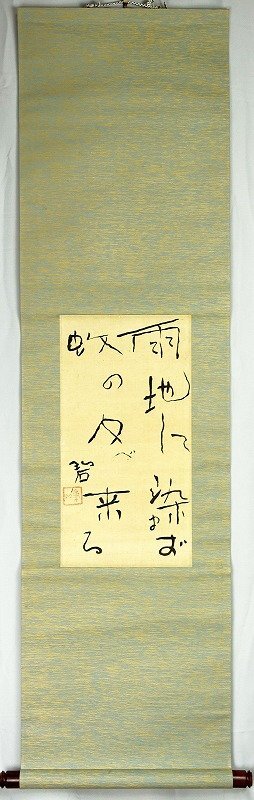 雨地に染まず
蚊の夕べ来る
碧